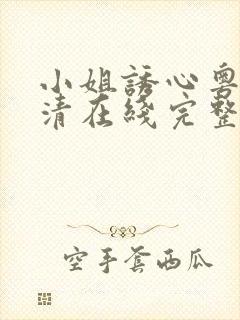 小姐誘心粵
清在綫完整
空手套西瓜